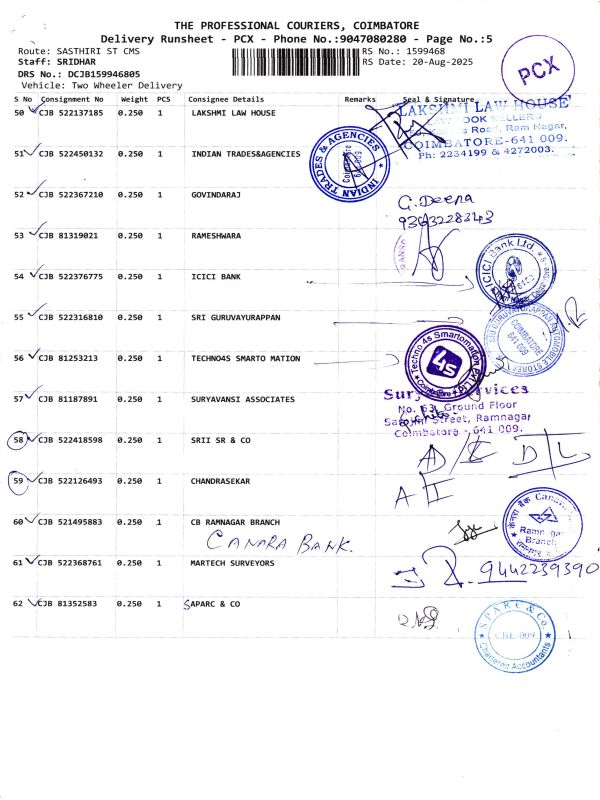 THE PROFESSIONAL COURIERS, COIMBATORE
Delivery Runsheet - PCX - Phone No.:9047080280 - Page No.:5
Route: SASTHIRI ST CMS
RS No.: 1599468
Staff: SRIDHAR
RS Date: 20-Aug-2025
DRS No.: DCJB159946805
Vehicle: Two Wheeler Delivery
PCX
S No Consignment No Weight PCS Consignee Details Remarks Seal & Signature
50 CJB 522137185 0.250 1 LAKSHMI LAW HOUSE
LAKSHMI LAW HOUSE
Road, Ram Nagar,
COIMBATORE-641 009.
Ph: 2234199 & 4272003.
51 CJB 522450132 0.250 1 INDIAN TRADES&AGENCIES
INDIAN TRADES & AGENCIES
52 CJB 522367210 0.250 1 GOVINDARAJ
G. Deena
53 CJB 81319021 0.250 1 RAMESHWARA
54 CJB 522376775 0.250 1 ICICI BANK
ICICI Bank Ltd.
55 CJB 522316810 0.250 1 SRI GURUVAYURAPPAN
SRI GURUVAYURAPPAN AUTOMOBILE STORES
COIMBATORE
641 009
56 CJB 81253213 0.250 1 TECHNO4S SMARTO MATION
Techno 4s Smartomation
4s
Coimbatore
57 CJB 81187891 0.250 1 SURYAVANSI ASSOCIATES
No. 63, Ground Floor
Street, Ramnagar
Coimbatore - 641 009.
58 CJB 522418598 0.250 1 SRII SR & CO
A/C D/L
59 CJB 522126493 0.250 1 CHANDRASEKAR
60 CJB 521495883 0.250 1 CB RAMNAGAR BRANCH
CANARA BANK.
केनरा बैंक Canara
Ramnagar
Branch
61 CJB 522368761 0.250 1 MARTECH SURVEYORS
9442239390
62 CJB 81352583 0.250 1 SAPARC & CO
SPARC & Co.
CBE-009
Chartered Accountants